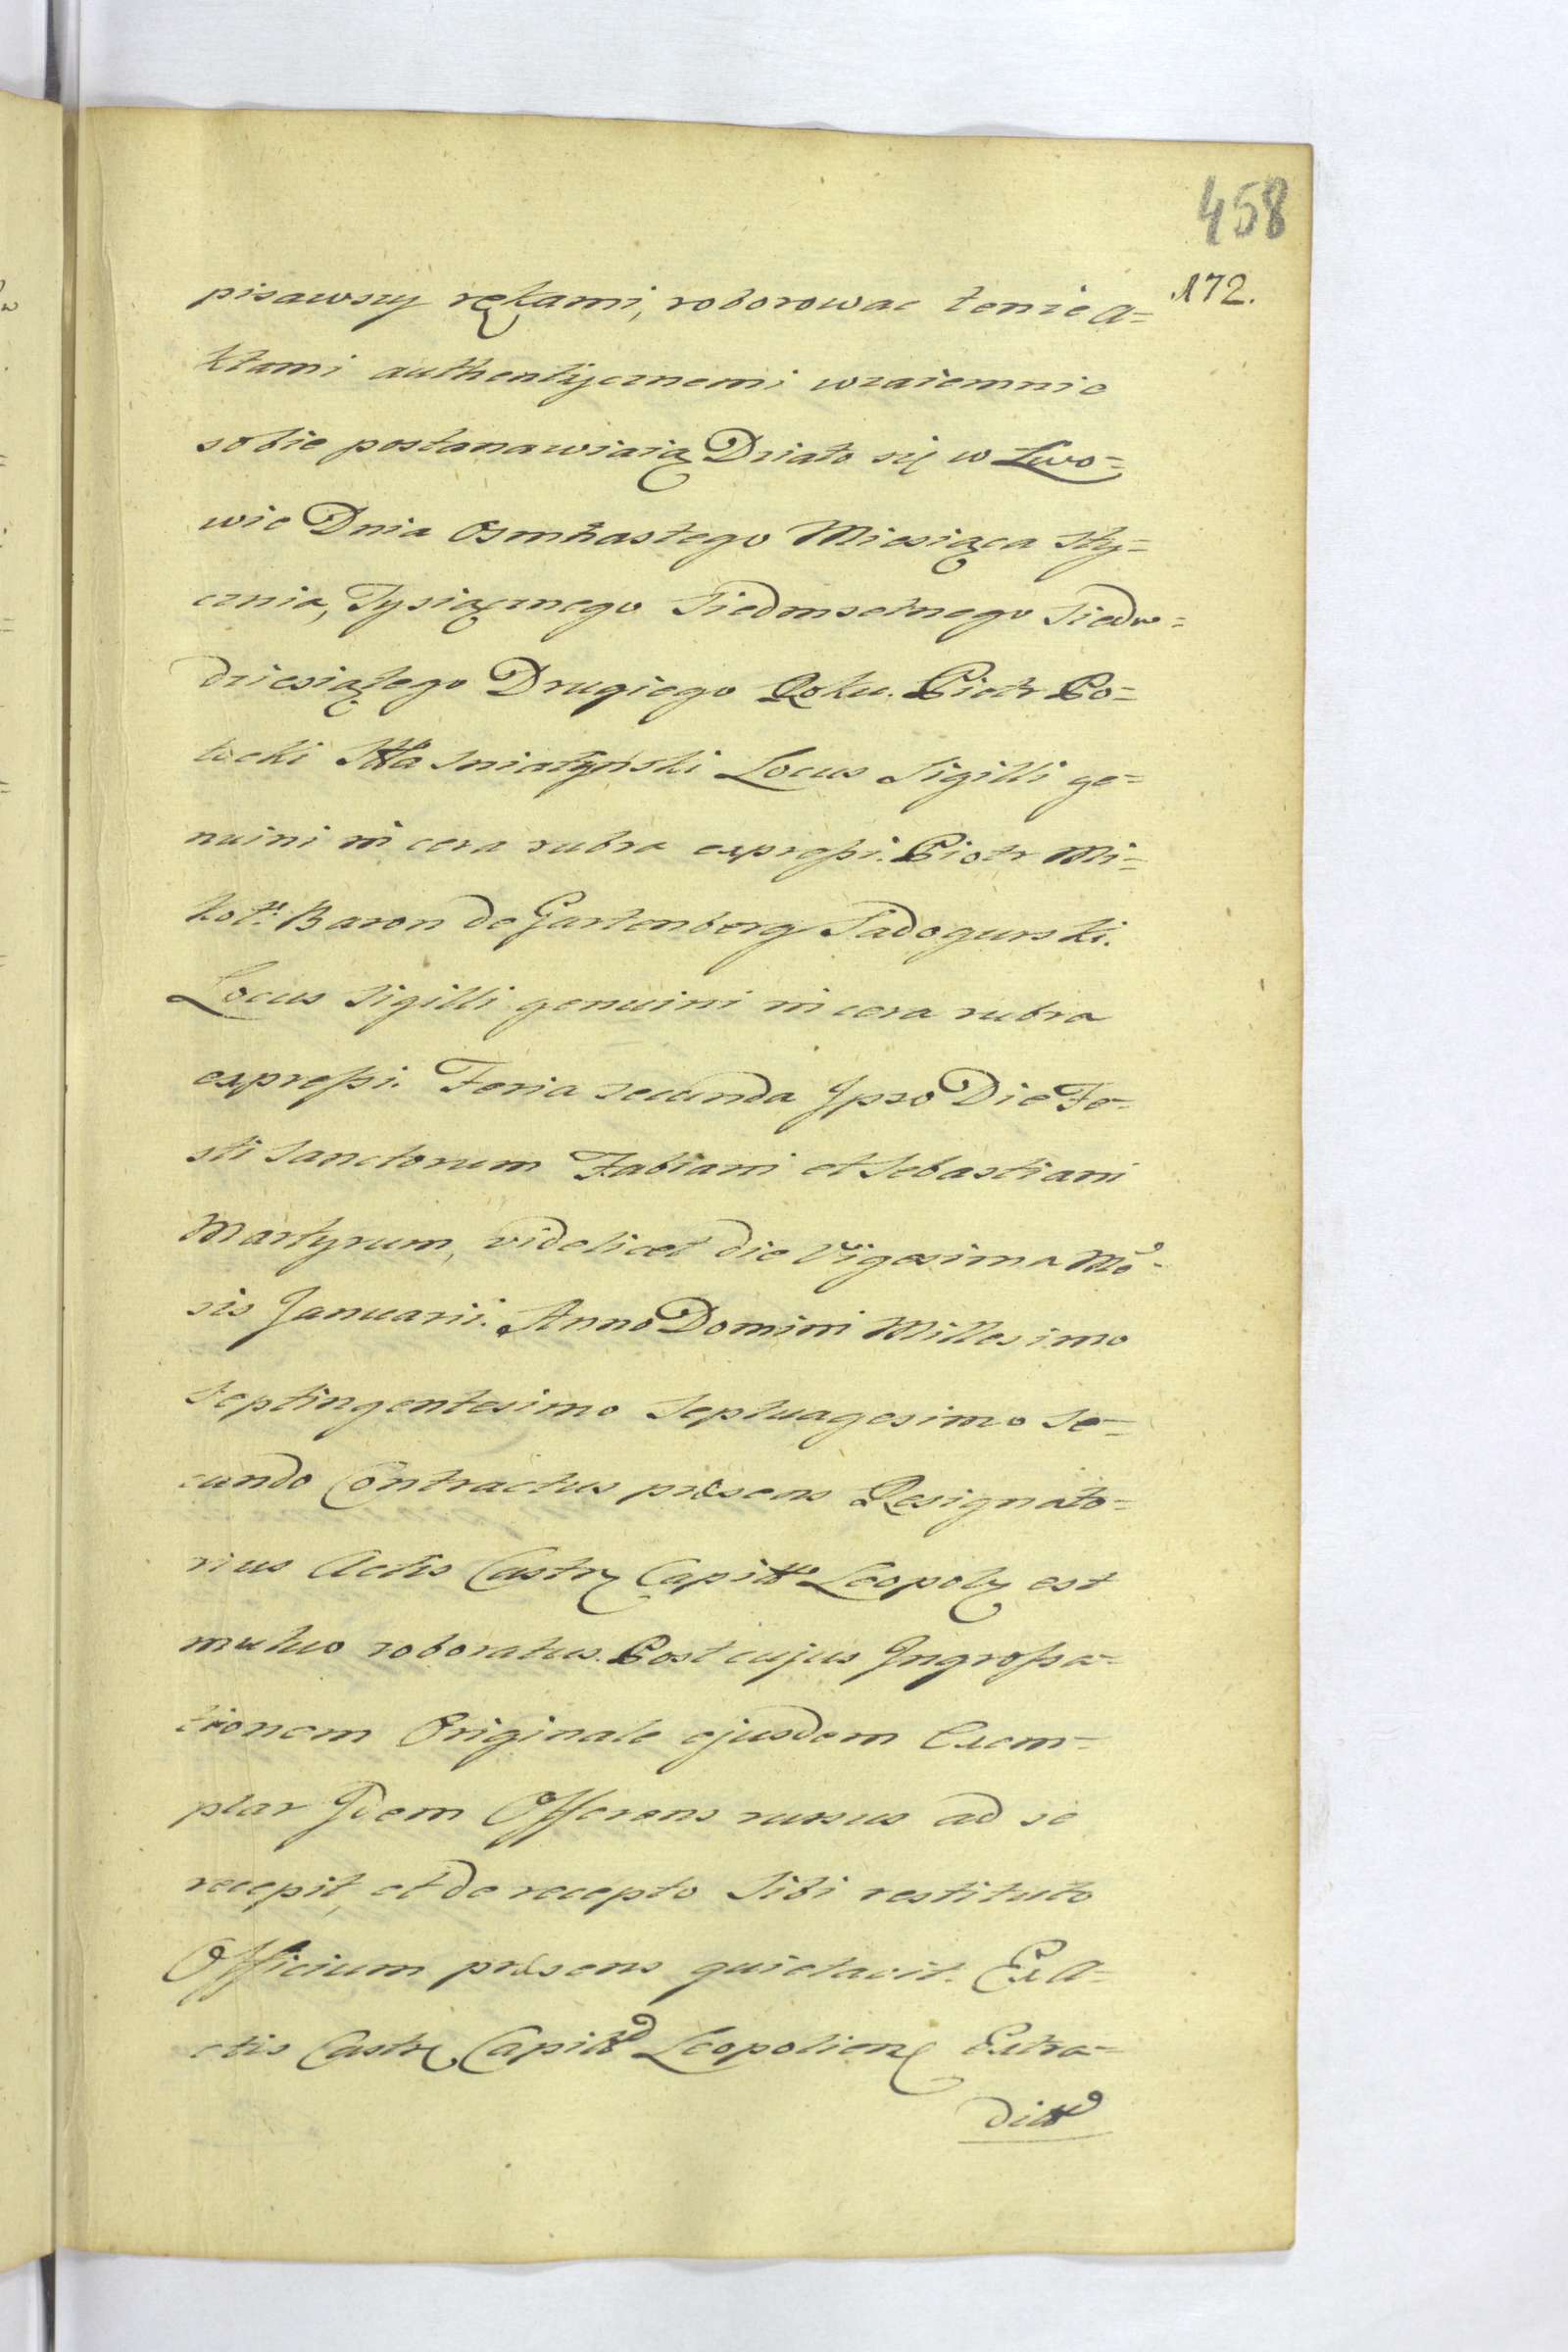 458
172.
pisawszy rękami, roborowac tenże A=
ktami authentycznemi wzaiemnie
sobie postanawiaią Działo się w Lwo=
wie Dnia Osmnastego Miesiąca Sty=
cznia, Tysiącznego Siedmsetnego Siedm=
dziesiątego Drugiego Roku. Piotr Po=
tocki Stta Sniatynski Locus Sigilli ge=
nuini in cera rubra expressi. Piotr Mi=
koł: Baron de Gartenberg Sadogurski.
Locus Sigilli genuini in cera rubra
expressi. Feria secunda Ipso Die Fe=
sti Sanctorum Fabiani et Sebastiani
Martyrum, videlicet die Vigesima Me=
sis Januarii. Anno Domini Millesimo
Septingentesimo Septuagesimo Se=
cundo Contractus præsens Resignato=
rius Actis Castr Capitt Leopol est
mutuo roboratus. Post cujus Ingrossa=
tionem Originale ejusdem Exem=
plar Idem Offerens rursus ad se
recepit, et de recepto Sibi restituto
Officium præsens quietavit. Ex A=
ctis Castr Capitt Leopolien Extra=
ditt